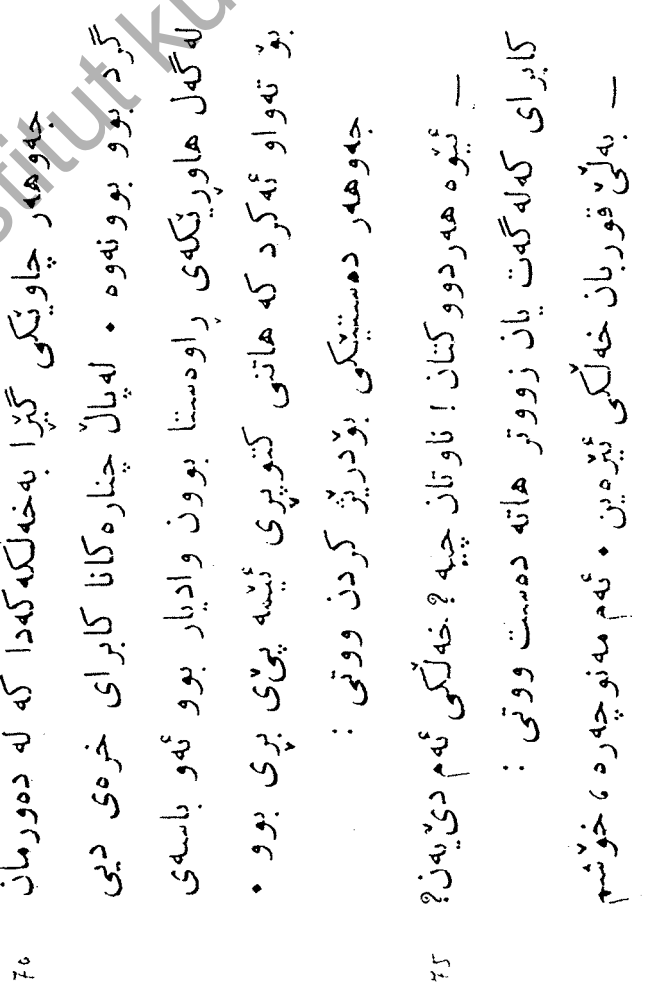 جەوهەر چاوێکی گێڕا بەخەڵکەکەدا کە لە دەورمان
گرد بوو بوونەوە . لەپاڵ چنارەکانا کابرای خرەی دیی
لەگەل هاوڕێکەی ڕاوەستا بوون وادیار بوو ئەو باسەی
بۆ تەواو ئەکرد کە هاتنی کتوپڕی ئێمە پێی بڕی بوو .
جەوهەر دەستێکی بۆدرێژ کردن ووتی :
— ئێوە هەردووکتان ! ناوتان چییە ? خەڵکی ئەم دێیەن ?
کابرای کەلەگەت یان زووتر هاتە دەست ووتی :
— بەڵێ قوربان خەڵکی ئێرەین . ئەم مەنوچەرە ، خۆشم
70
75
stitut ku